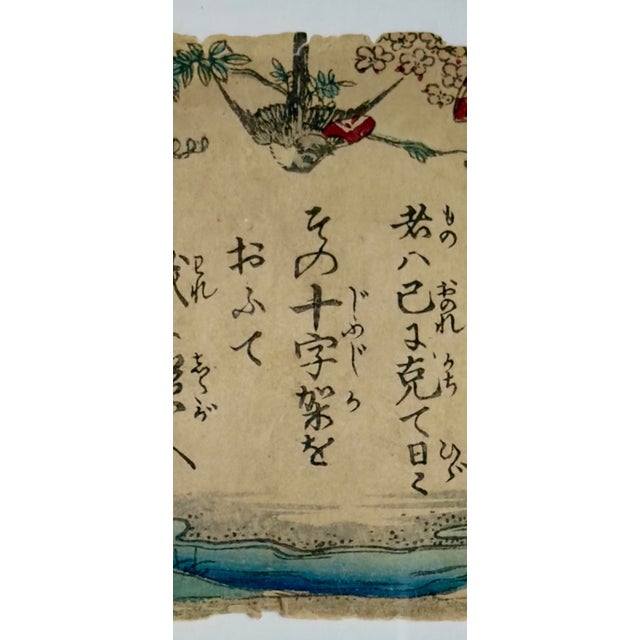 者ハ己に克て日々
その十字架を
おふて